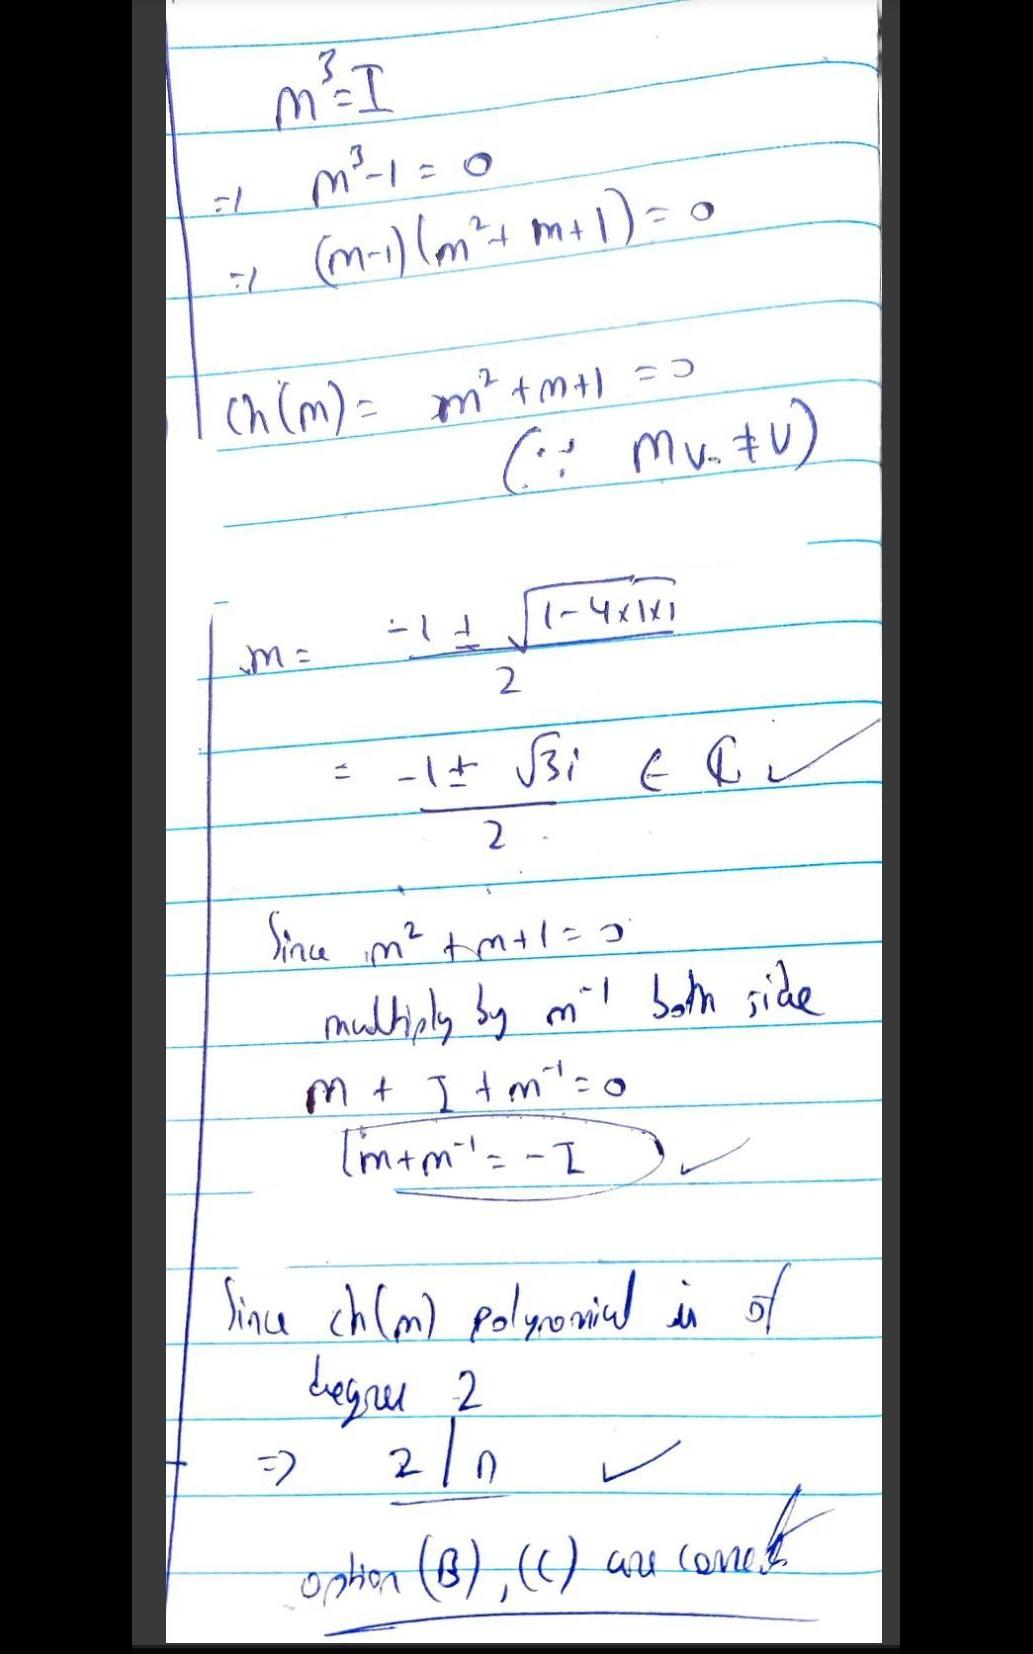 m³=I
=) m³-1 = 0
=) (m-1)(m²+ m+1) = 0
Ch(m) = m² +m+1 = 0
(∵ Mv ≠ V)
m = -1 ± √1-4×1×1
2
= -1± √3i ∈ ℂ ✓
2
Since m² +m+1 = 0
multiply by m⁻¹ both side
m + I + m⁻¹ = 0
m+m⁻¹ = -I ✓
Since ch(m) polynomial is of
degree 2
=> 2/n ✓
option (B), (C) are correct